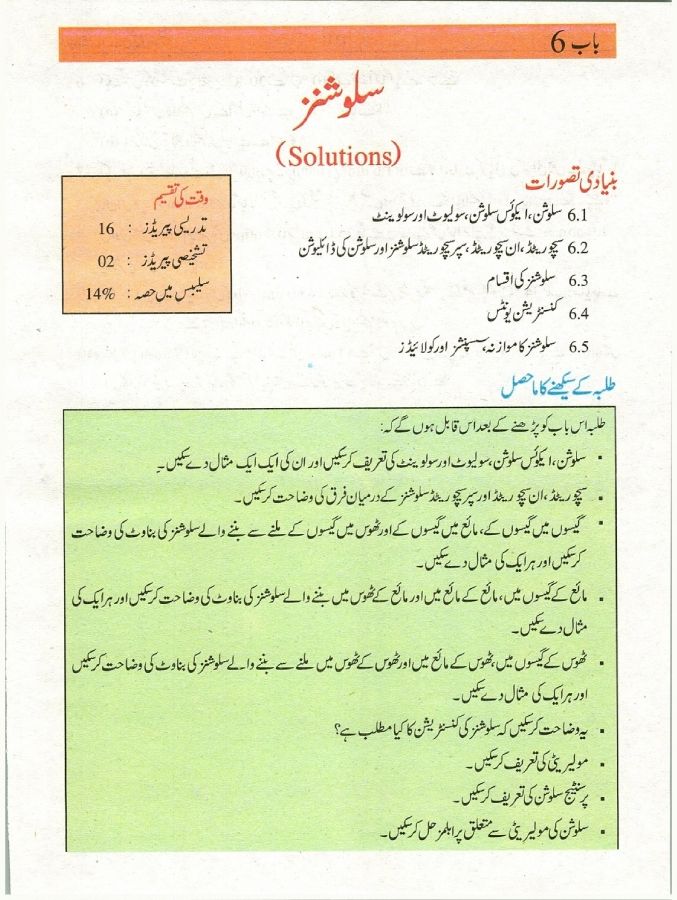 باب 6
سلوشنز
(Solutions)
بنیادی تصورات
6.1 سلوشن، ایکوئس سلوشن، سولیوٹ اور سولوینٹ
6.2 سیچوریٹڈ، ان سیچوریٹڈ، سپر سیچوریٹڈ سلوشنز اور سلوشن کی ڈائلیوشن
6.3 سلوشنز کی اقسام
6.4 کنسنٹریشن یونٹس
6.5 سلوشنز کا موازنہ، سسپنشنز اور کولائیڈز
وقت کی تقسیم
تدریسی پیریڈز : 16
تشخیصی پیریڈز : 02
سلیبس میں حصہ : 14%
طلبہ کے سیکھنے کا ماحصل
طلبہ اس باب کو پڑھنے کے بعد اس قابل ہوں گے کہ:
▪ سلوشن، ایکوئس سلوشن، سولیوٹ اور سولوینٹ کی تعریف کر سکیں اور ان کی ایک ایک مثال دے سکیں۔
▪ سیچوریٹڈ، ان سیچوریٹڈ اور سپر سیچوریٹڈ سلوشنز کے درمیان فرق کی وضاحت کر سکیں۔
▪ گیسوں میں گیسوں کے، مائع میں گیسوں کے اور ٹھوس میں گیسوں کے ملنے سے بننے والے سلوشنز کی بناوٹ کی وضاحت
کر سکیں اور ہر ایک کی مثال دے سکیں۔
▪ مائع کے گیسوں میں، مائع کے مائع میں اور مائع کے ٹھوس میں بننے والے سلوشنز کی بناوٹ کی وضاحت کر سکیں اور ہر ایک کی
مثال دے سکیں۔
▪ ٹھوس کے گیسوں میں، ٹھوس کے مائع میں اور ٹھوس کے ٹھوس میں ملنے سے بننے والے سلوشنز کی بناوٹ کی وضاحت کر سکیں
اور ہر ایک کی مثال دے سکیں۔
▪ یہ وضاحت کر سکیں کہ سلوشنز کی کنسنٹریشن کا کیا مطلب ہے؟
▪ مولیریٹی کی تعریف کر سکیں۔
▪ پرسنٹیج سلوشن کی تعریف کر سکیں۔
▪ سلوشن کی مولیریٹی سے متعلق پرابلمز حل کر سکیں۔